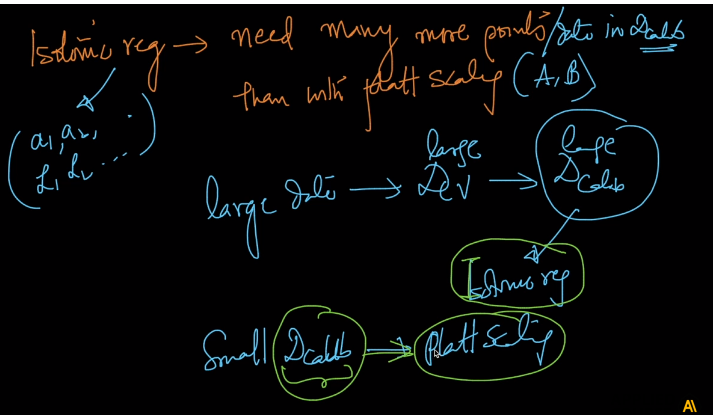 Isotonic reg → need many more points/data in Dcalib
than with platt scaling (A, B)
(a1, a2, . .
L1, L2 ...)
large data → large DCV → large DCalib
Isotonic reg
Small Dcalib → Platt Scaling
A\